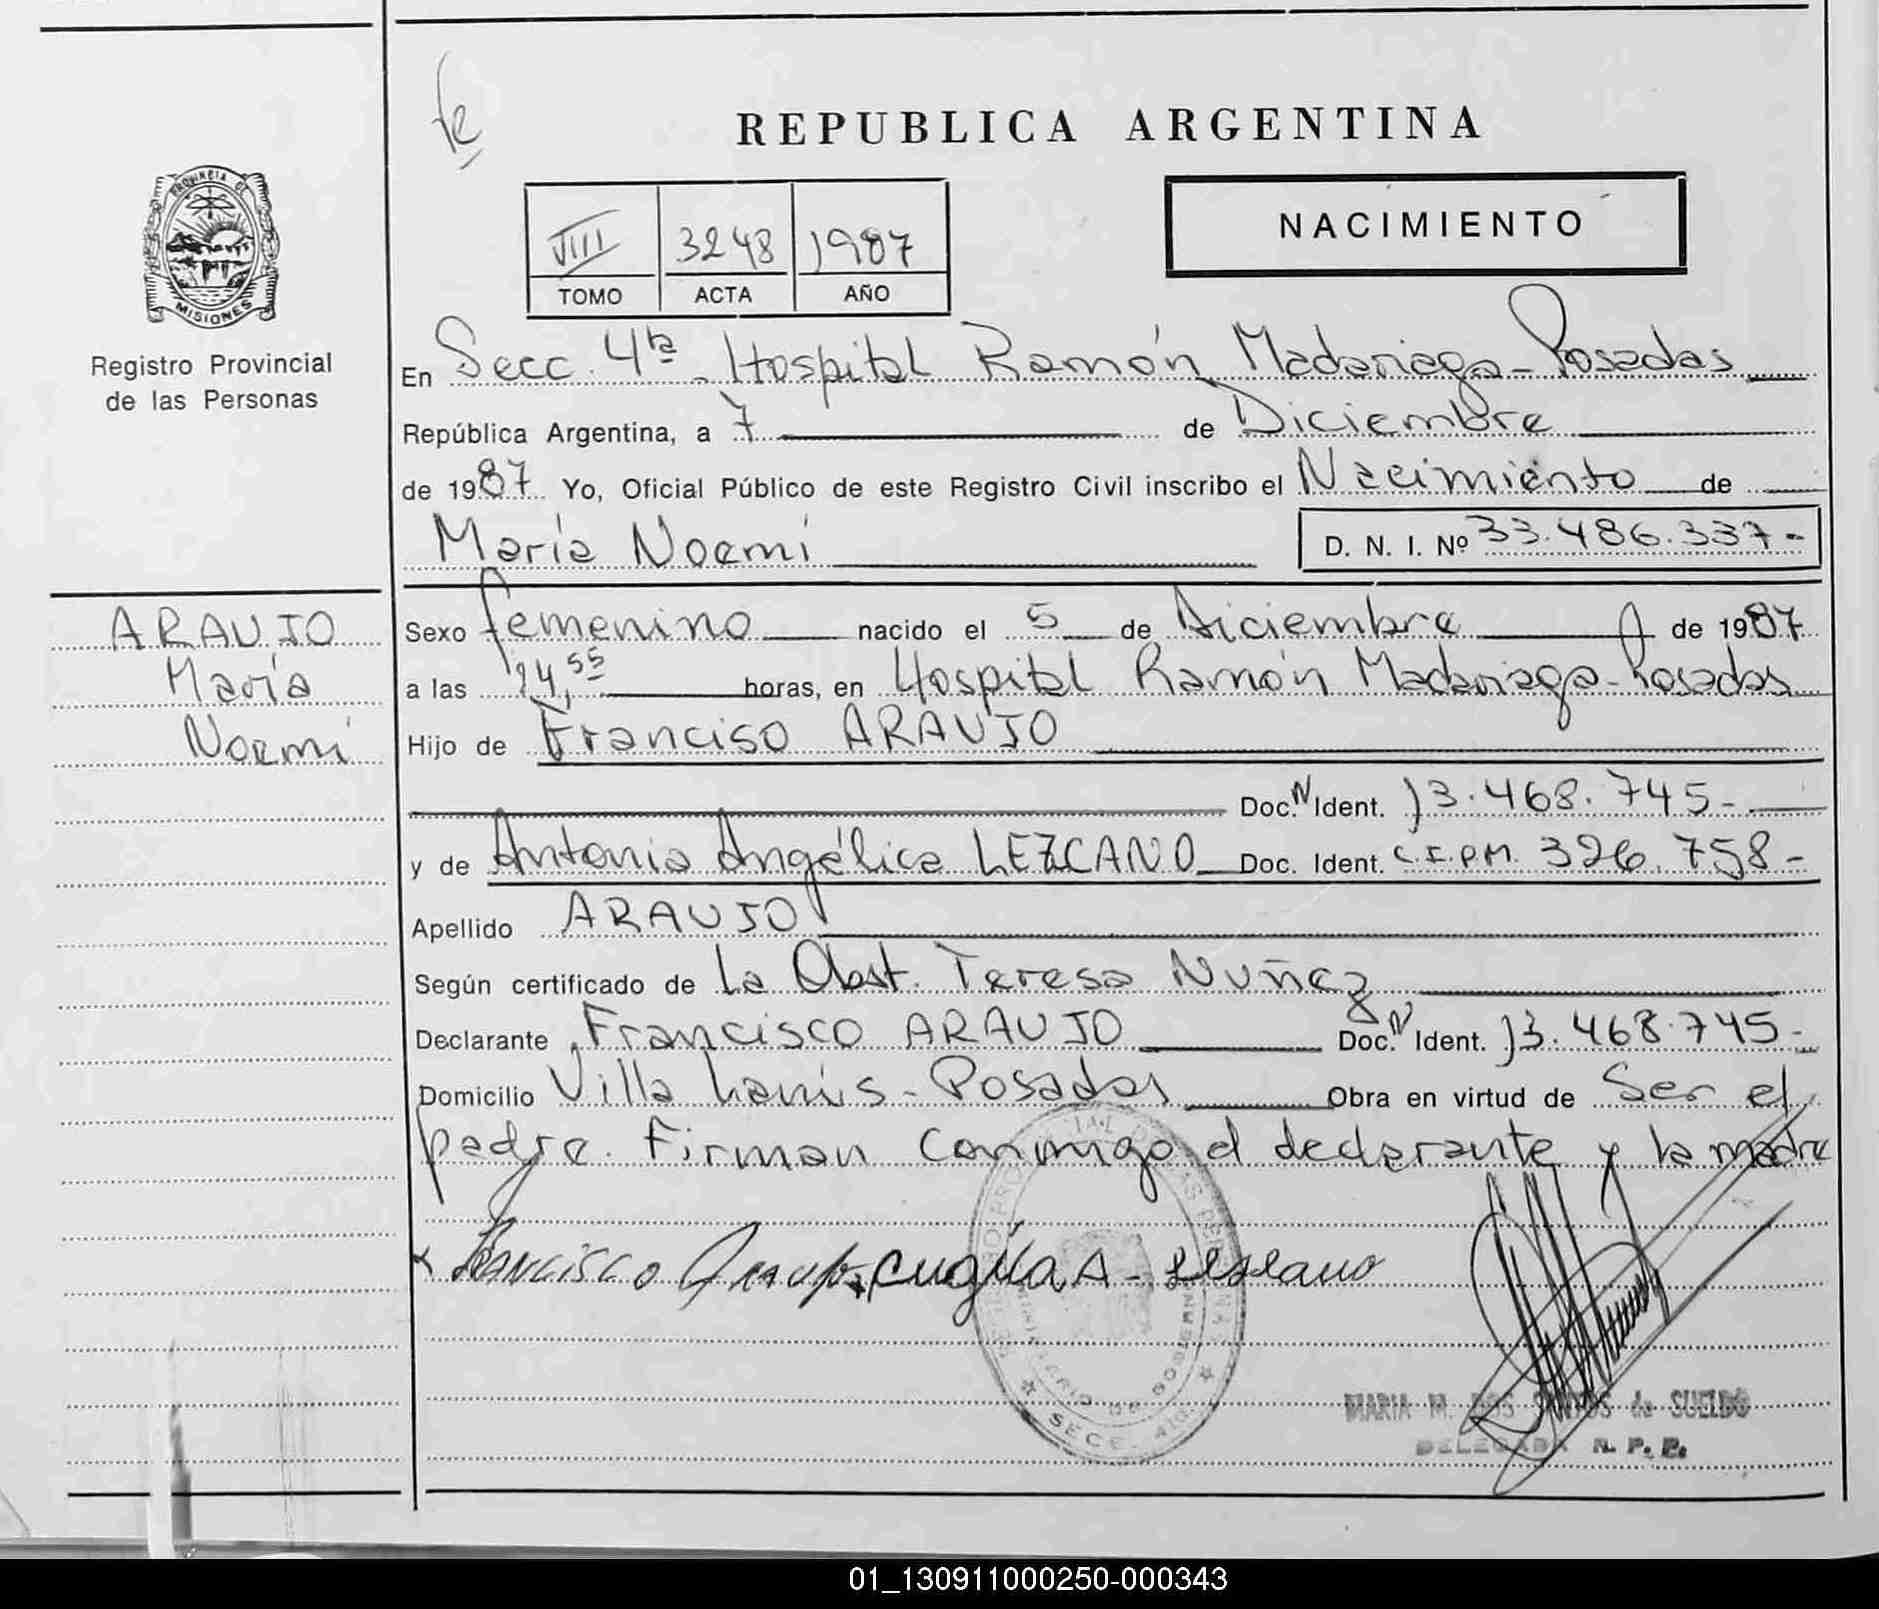 REPUBLICA ARGENTINA
PROVINCIA DE
MISIONES
Registro Provincial
de las Personas
VIII 3248 1987
TOMO ACTA AÑO
NACIMIENTO
En Secc. 4ta Hospital Ramón Madariaga - Posadas
República Argentina, a 7 de Diciembre
de 1987 Yo, Oficial Público de este Registro Civil inscribo el Nacimiento de
María Noemí D. N. I. Nº 33.486.337-
ARAUJO
María
Noemí
Sexo femenino nacido el 5 de Diciembre de 1987
a las horas, en Hospital Ramón Madariaga - Posadas
Hijo de Franciso ARAUJO
Doc. Nº Ident. 13.468.745-
y de Antonia Angélica LEZCANO Doc. Ident. C.I.P.M. 326.758-
Apellido ARAUJO
Según certificado de la Obst. Teresa Nuñez
Declarante Francisco ARAUJO Doc. Nº Ident. 13.468.745-
Domicilio Villa Lanús - Posadas Obra en virtud de Ser el
padre. Firman conmigo el declarante y la madre
Francisco Araujo A - Leslano
MARIA M. DOS SANTOS de SUELDO
DELEGADA R. P. P.
SECC. 4ta.
01_130911000250-000343